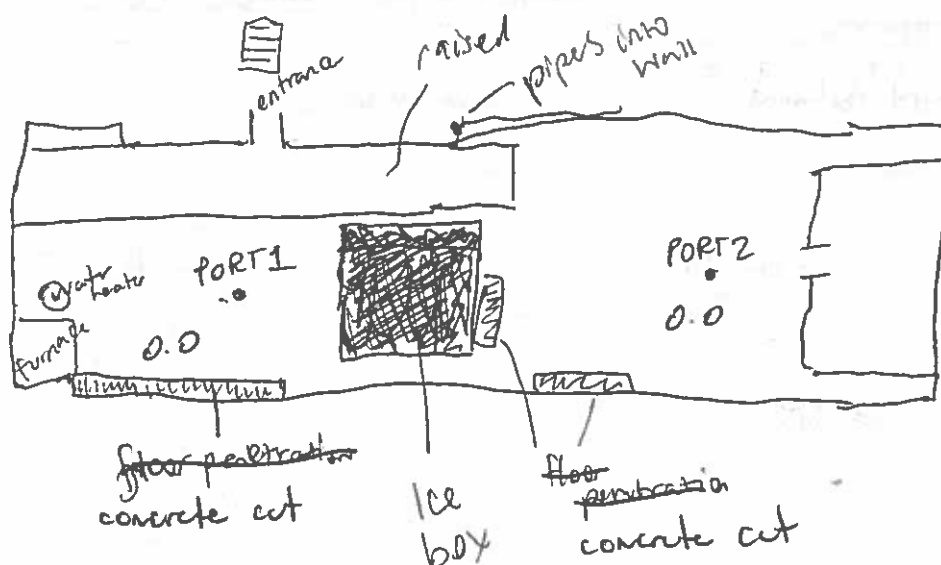 entrance
raised
pipes into
wall
PORT1
water
heater
furnace
0.0
PORT2
0.0
floor penetration
concrete cut
Ice
box
floor
penetration
concrete cut